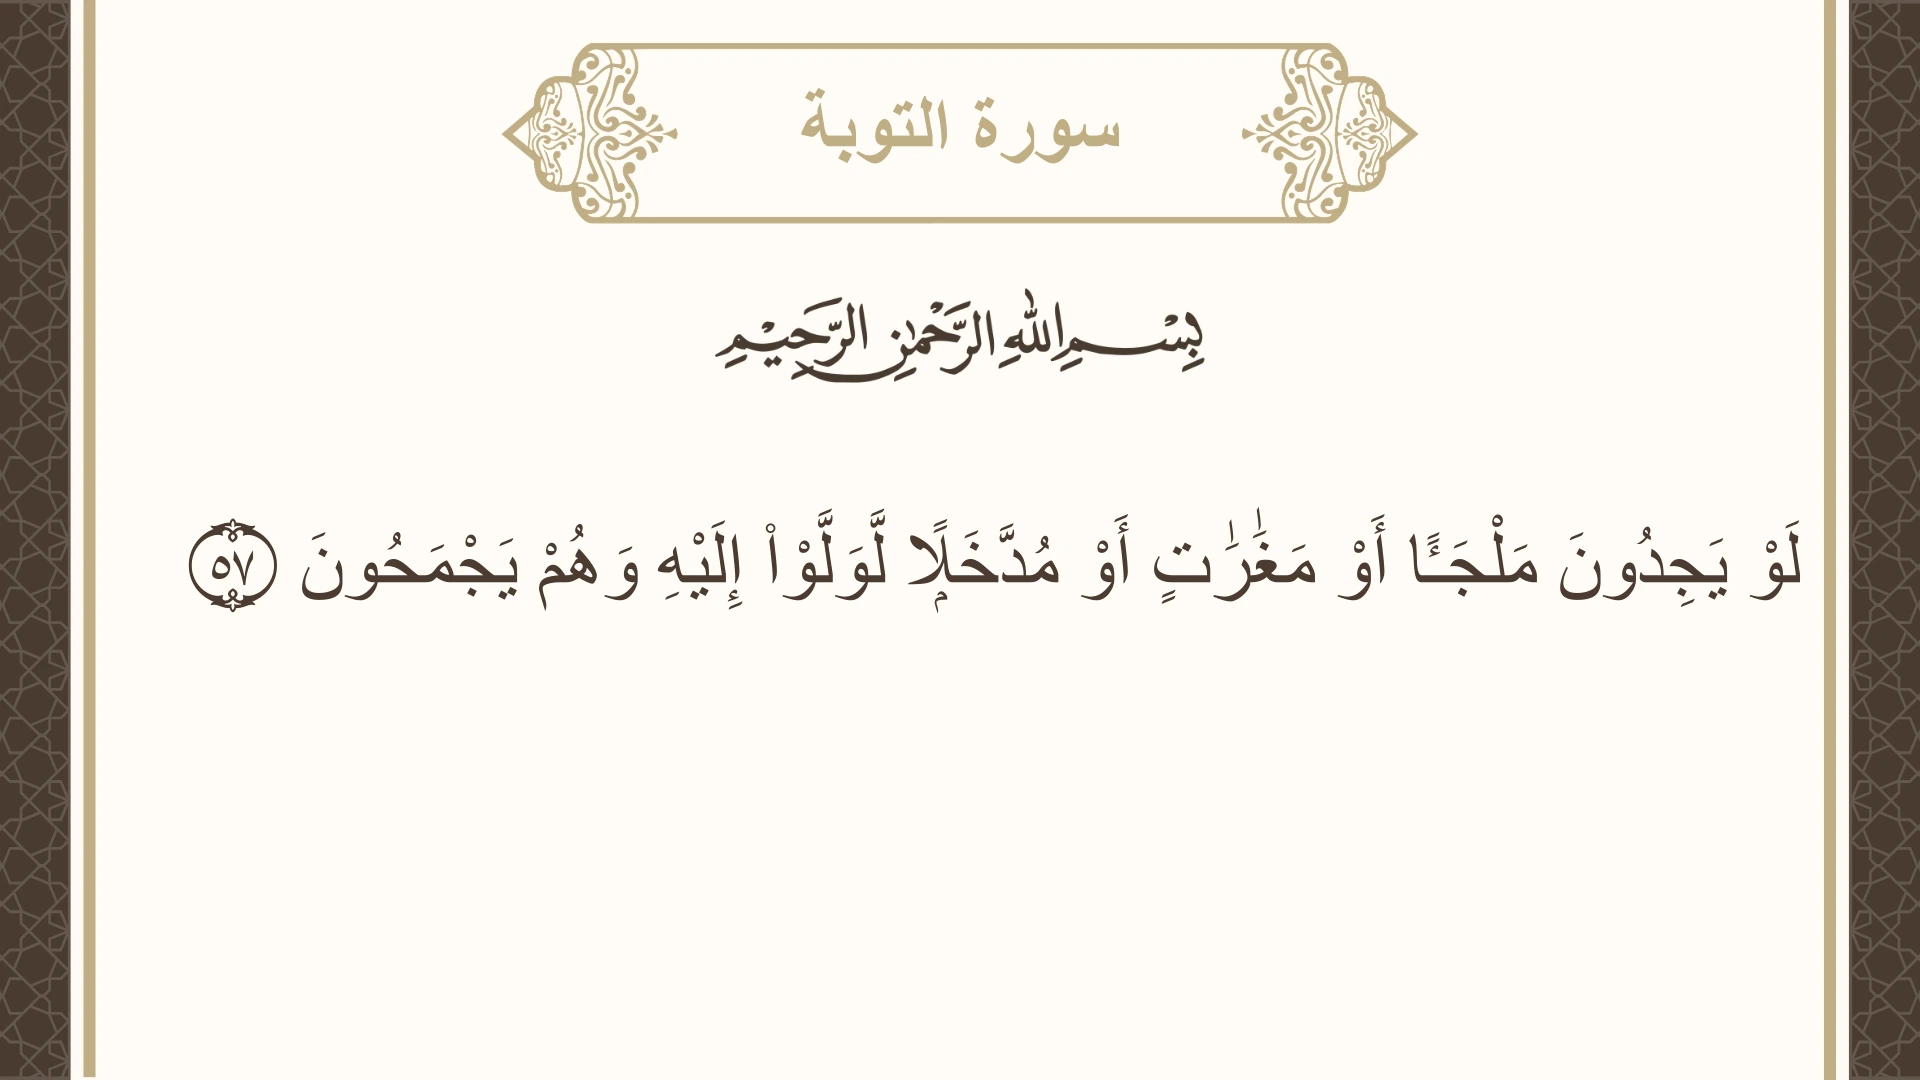 سورة التوبة
بِسْمِ اللهِ الرَّحْمٰنِ الرَّحِيْمِ
لَوْ يَجِدُونَ مَلْجَـًٔا أَوْ مَغَٰرَٰتٍ أَوْ مُدَّخَلًۭا لَّوَلَّوْا۟ إِلَيْهِ وَهُمْ يَجْمَحُونَ ٥٧